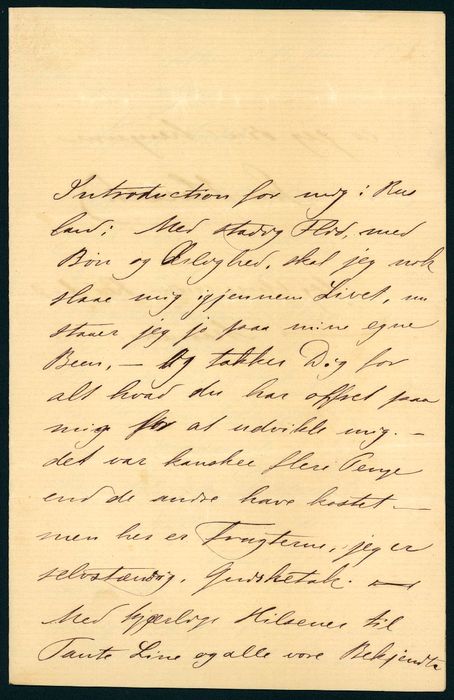 Introduction for mig i Rus
land; Med stadig Flid, med
Bøn og Ærlighed, skal jeg nok
slaae mig igjennem Livet, nu
staaer jeg jo paa mine egne
Been, — Og takker Dig for
alt hvad du har offret paa
mig for at udvikle mig. —
det var kanskee flere Penge
end de andre have kostet —
men her er Frugterne, jeg er
selvstændig, Gudsketak. —
Med kjærlige Hilsener til
Tante Line og alle vore Bekjendte